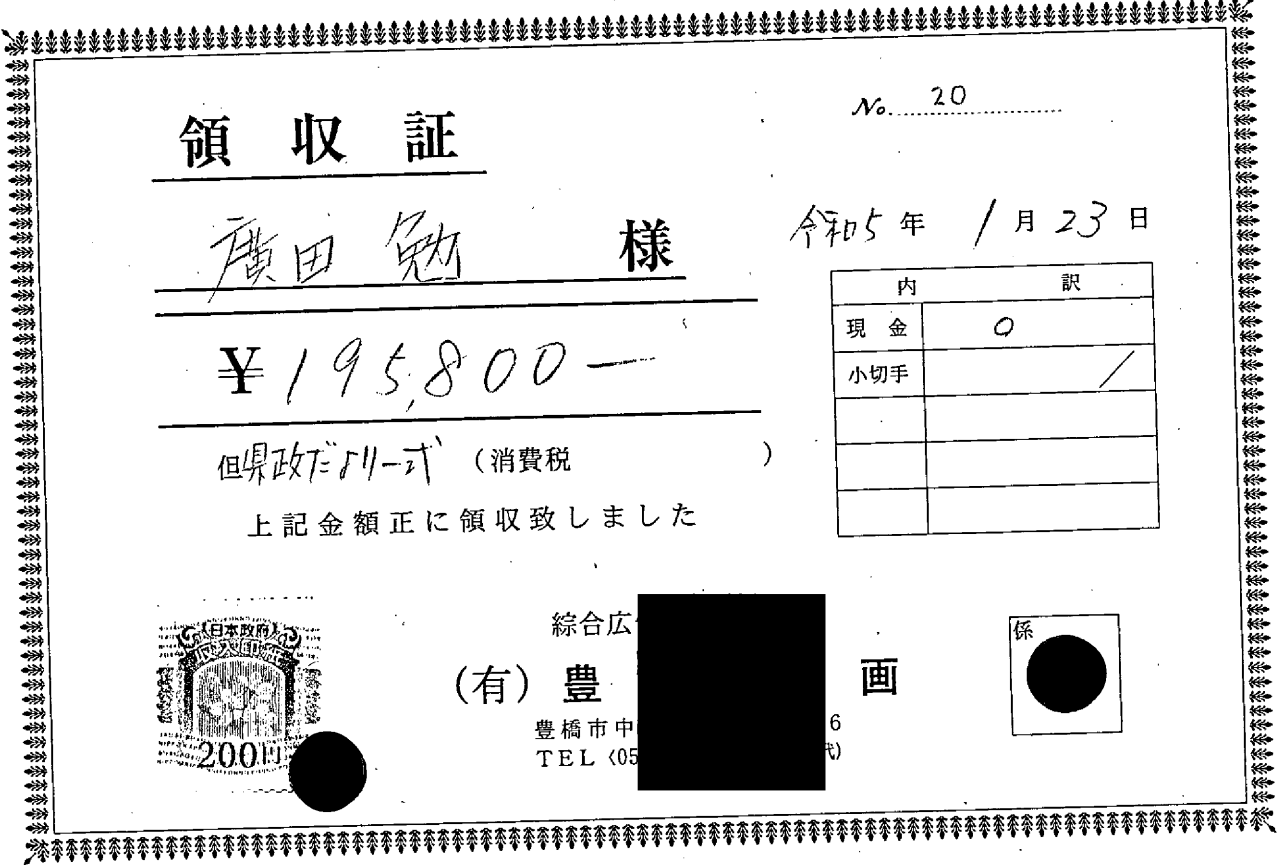 No. 20
領収証
廣田 勉 様
令和5年 1月23日
¥195,800—
但県政だより一式 (消費税 )
上記金額正に領収致しました
内訳
現金 0
小切手 /
日本政府
収入印紙
200円
綜合広
(有) 豊 画
豊橋市中 6
TEL (05 代)
係